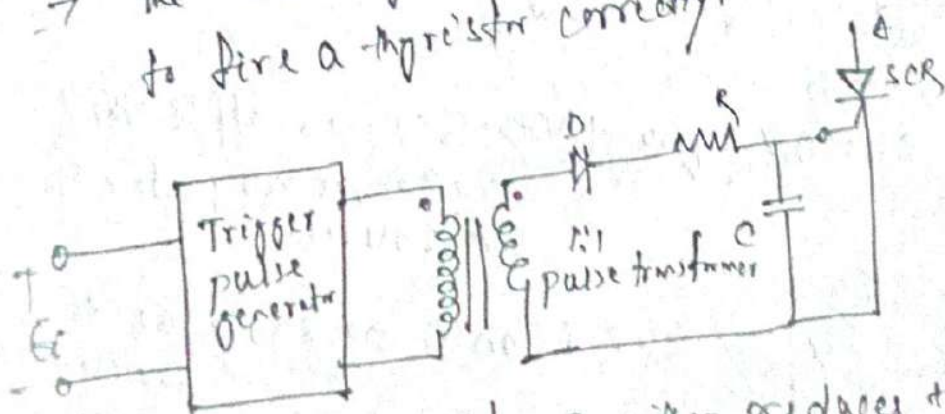 → the
to fire a thyristor correctly.
A
SCR
R
D
Trigger
pulse
generator
+
Ec
-
1:1
pulse transformer
C